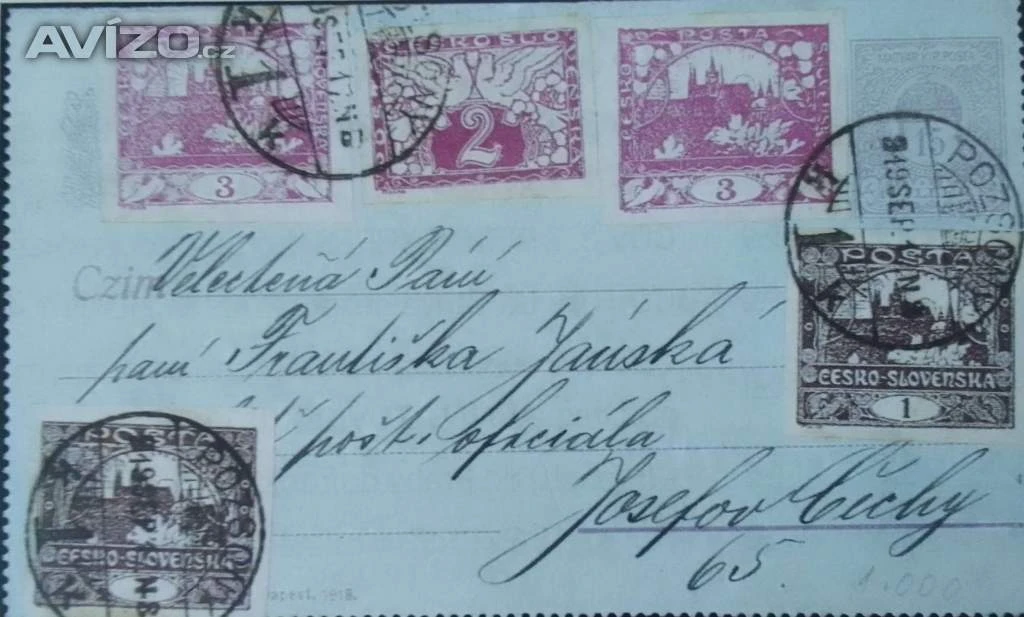 AVÍZO.cz
POSTA
3
ČESKOSLOVENSKÁ
2
POSTA
3
15
POZSONY
1
919 SEP
Czím
Velectěná Paní
paní Františka Jánská
pošt. oficiála
Josefov Čechy
65.
POSTA
ČESKO-SLOVENSKA
1
POSTA
ČESKO-SLOVENSKA
1
POZSONY
apest. 1918.
1.000